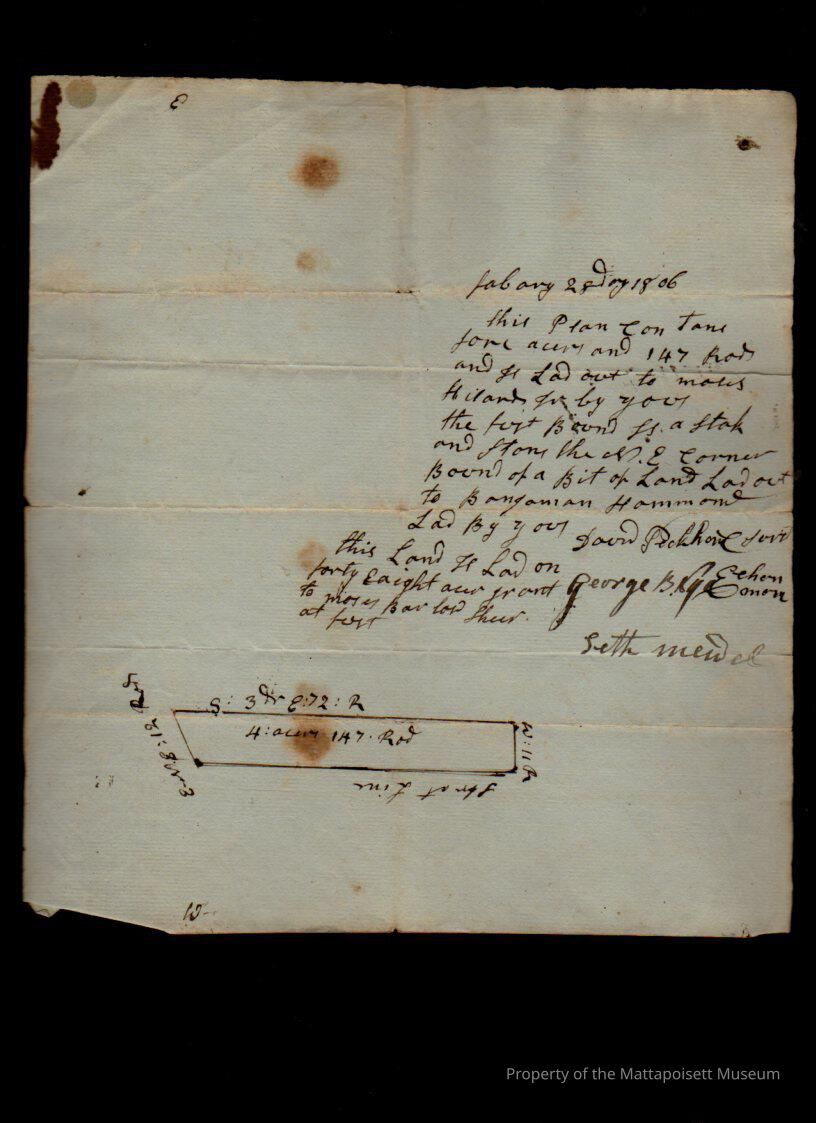 E
fabary 28 day 1806
this Plan Con tans
fore acurs and 147 Rods
and Is Lad out to moses
Hisard, Jr by yous
the furst Bound Is. a Stak
and Stons the N. E Corner
Bound of a Bit of Land Lad out
to Bangaman Hammond
Lad By yous
David Peckham
this Land Is Lad on
forty Eaight acur grant
to moses Bar low
at furst Shur.
George B. Nye
Seth Mendel
S: 3 dr E:72: R
4: acurs 147. Rod
W: 11 R
Strat Line
Rod
W-
Property of the Mattapoisett Museum